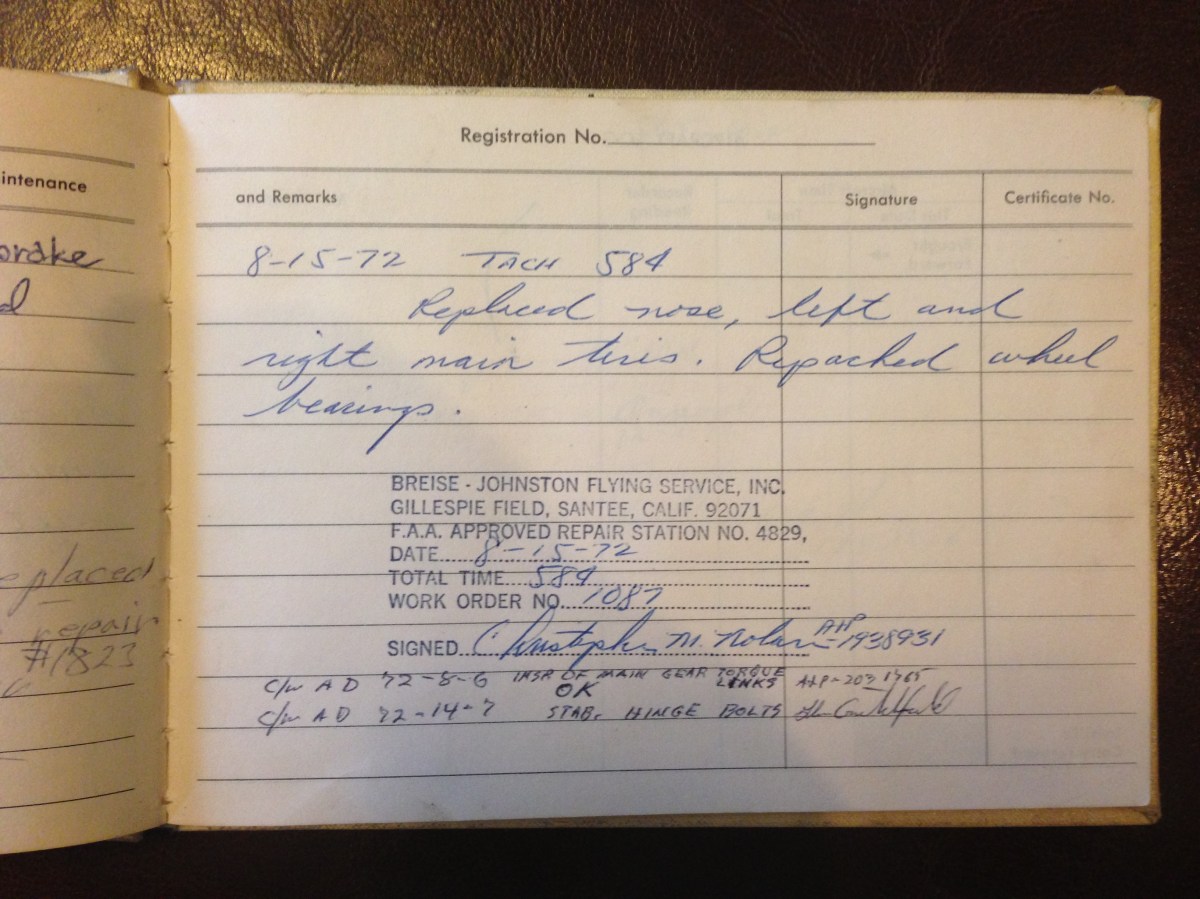 intenance
brake
d
placed
repair
#1823
Registration No.
and Remarks Signature Certificate No.
8-15-72 TACH 584
Replaced nose, left and
right main tires. Repacked wheel
bearings.
BREISE - JOHNSTON FLYING SERVICE, INC.
GILLESPIE FIELD, SANTEE, CALIF. 92071
F.A.A. APPROVED REPAIR STATION NO. 4829,
DATE 8-15-72
TOTAL TIME 584
WORK ORDER NO. 1087
SIGNED Christopher M. Nolan A&P-1938931
C/W AD 72-8-6 INSP OF MAIN GEAR TORQUE LINKS OK
C/W AD 72-14-7 STAB. HINGE BOLTS